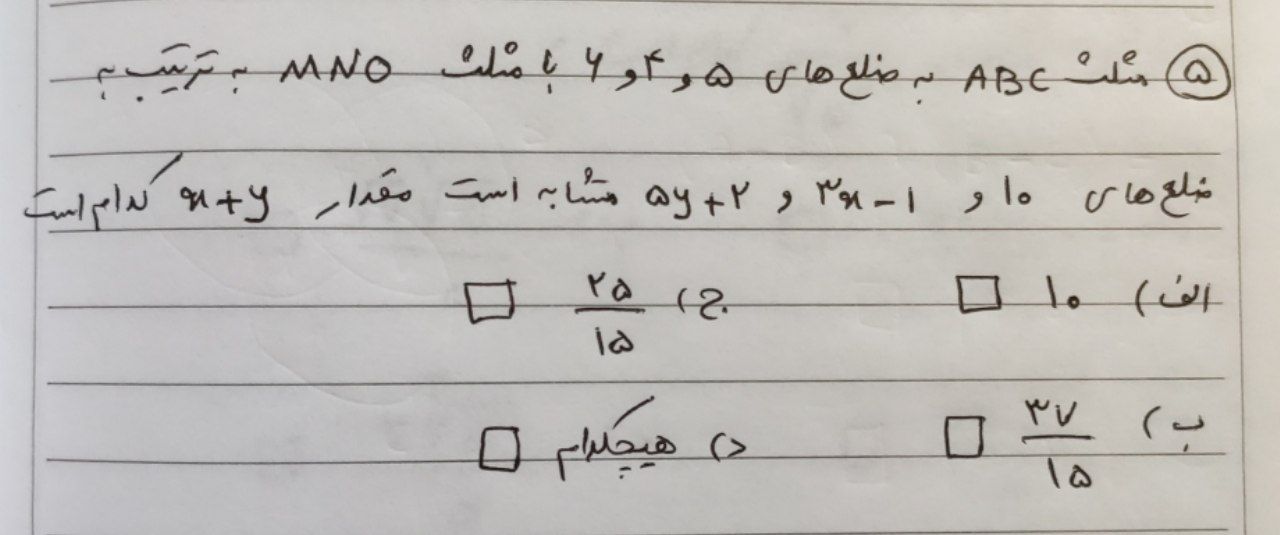 ۵ مثلث ABC به ضلع های ۵ و ۴ و ۶ با مثلث MNO به ترتیب به
ضلع های ۱۰ و ۳x-۱ و ۵y+۲ متشابه است مقدار x+y کدام است
الف) ۱۰ □ ج) ۲۵/۱۵ □
ب) ۳۷/۱۵ □ د) هیچکدام □